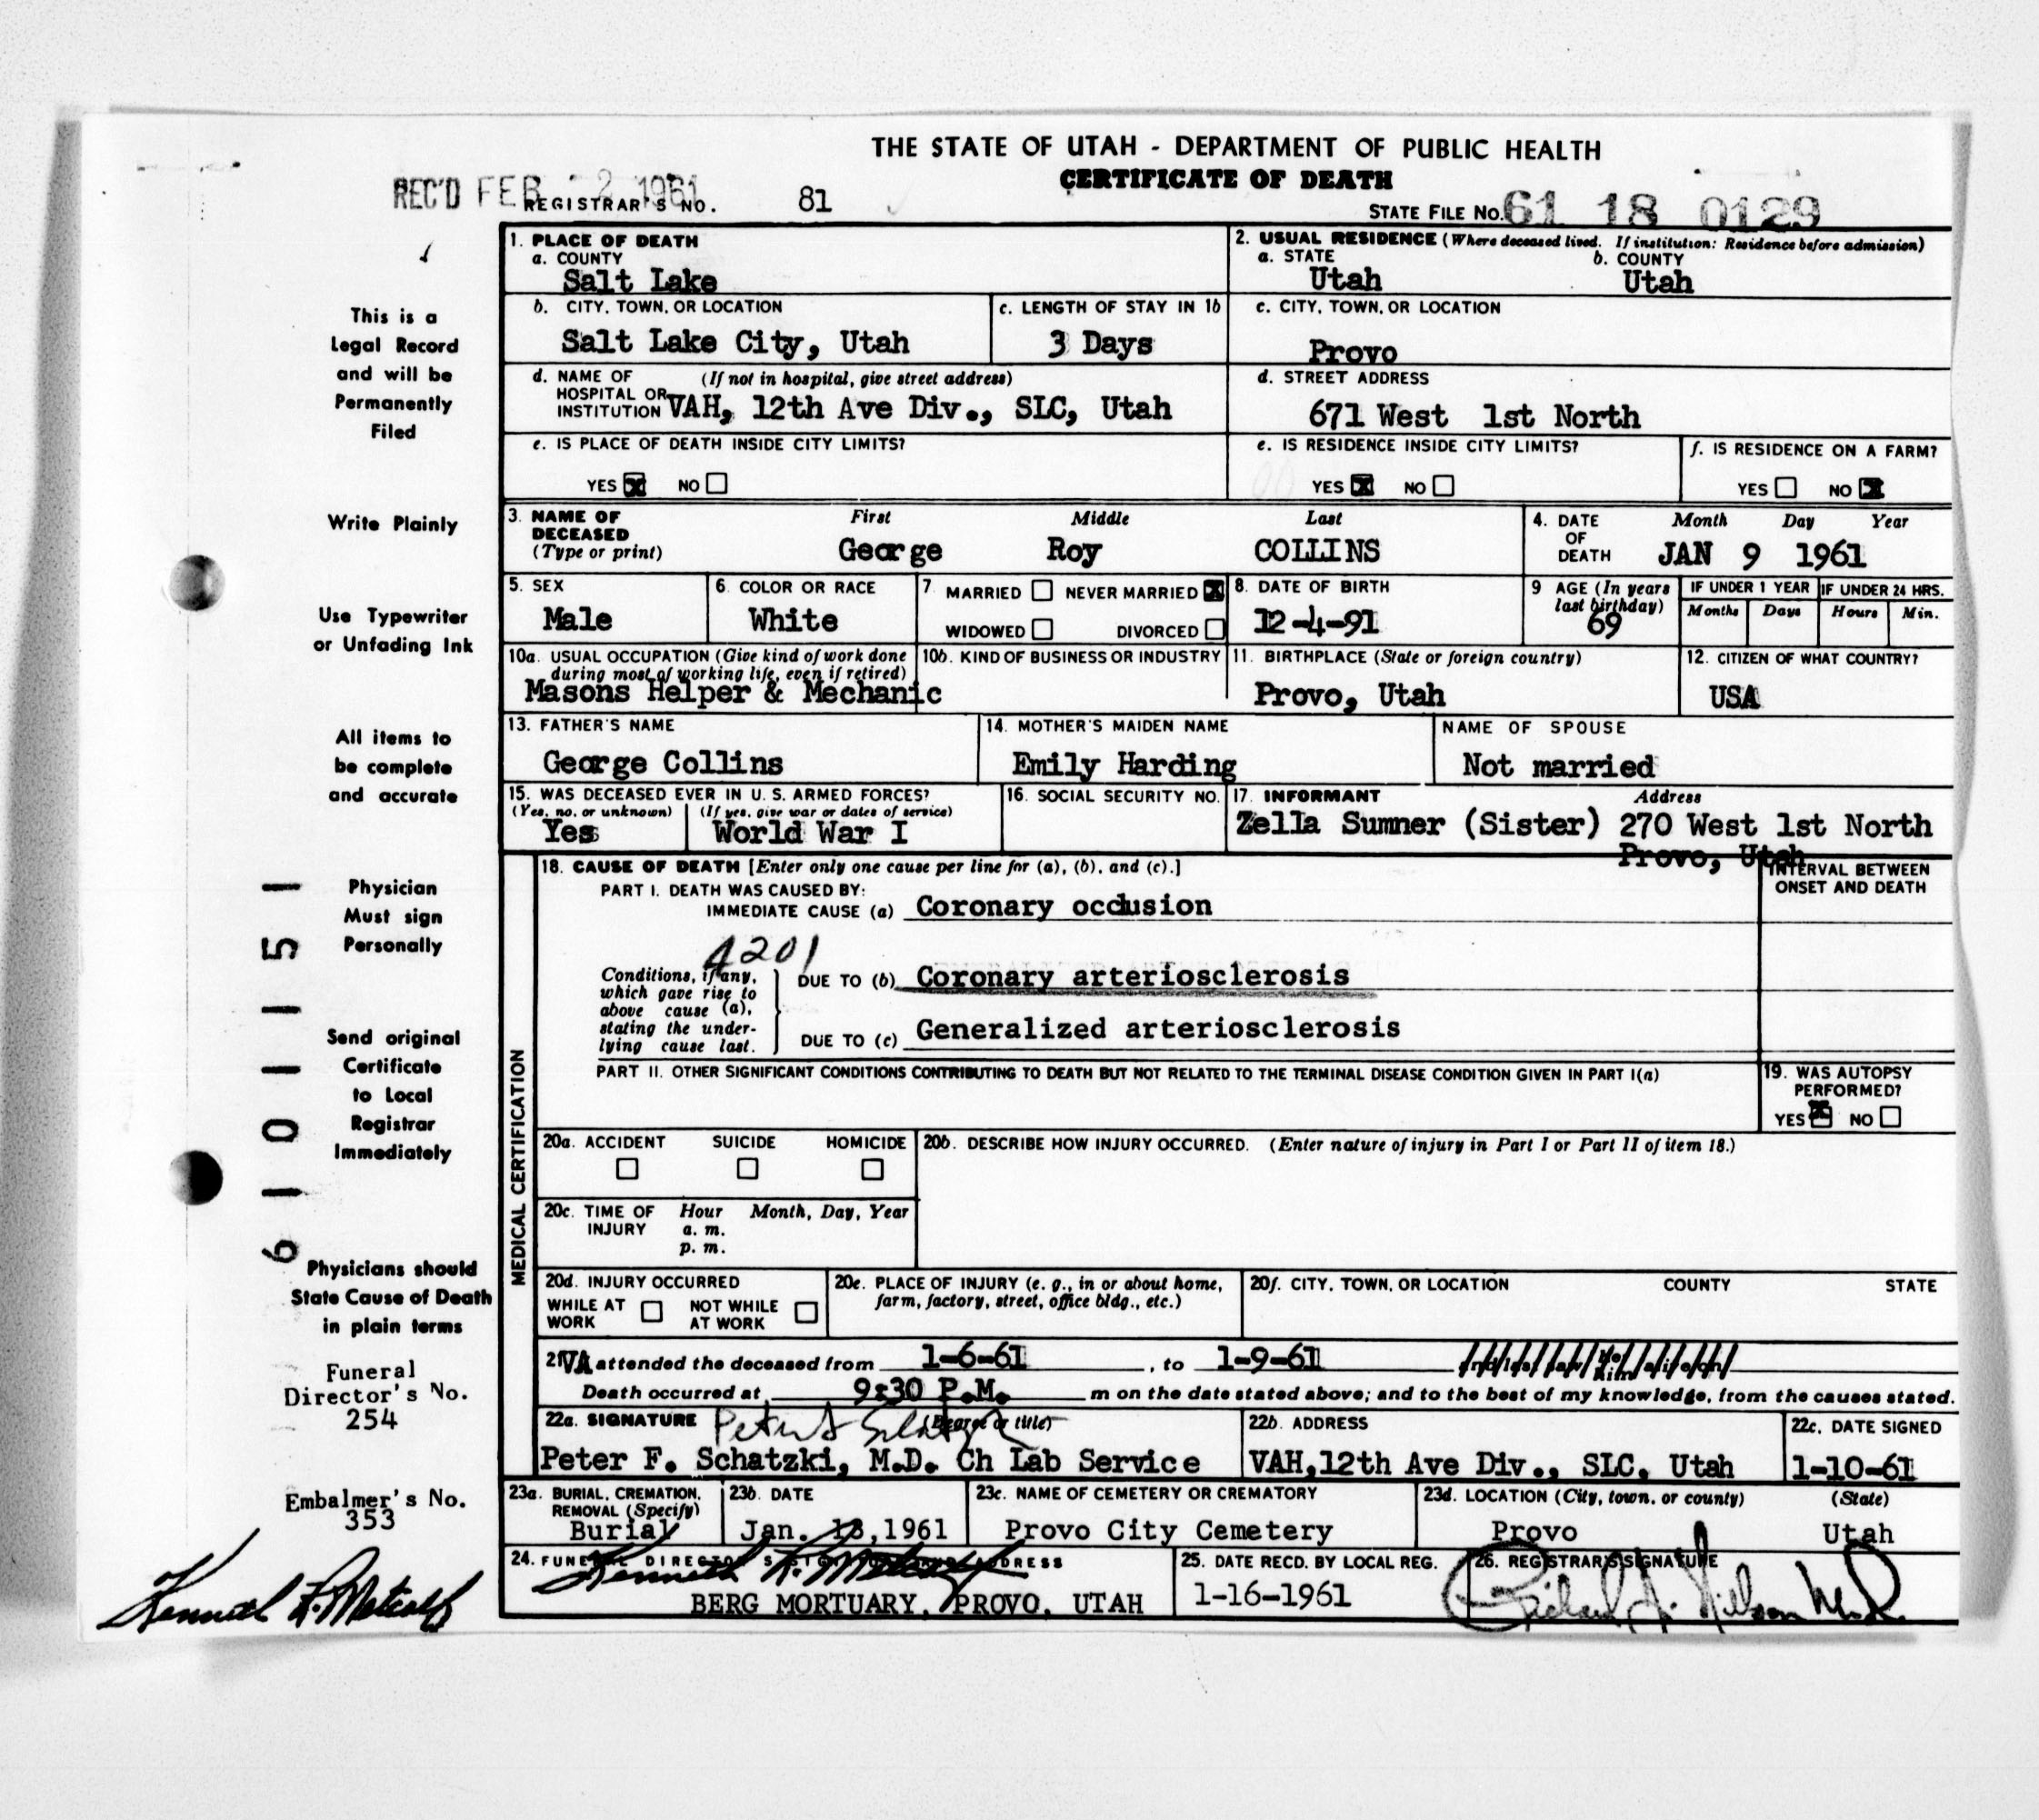 THE STATE OF UTAH - DEPARTMENT OF PUBLIC HEALTH
CERTIFICATE OF DEATH
REC'D FEB -2 1961
REGISTRAR'S NO. 81
STATE FILE NO. 61 18 0129
1. PLACE OF DEATH
a. COUNTY
Salt Lake
2. USUAL RESIDENCE (Where deceased lived. If institution: Residence before admission)
a. STATE b. COUNTY
Utah Utah
b. CITY, TOWN, OR LOCATION
Salt Lake City, Utah
c. LENGTH OF STAY IN 1b
3 Days
c. CITY, TOWN, OR LOCATION
Provo
d. NAME OF (If not in hospital, give street address)
HOSPITAL OR
INSTITUTION VAH, 12th Ave Div., SLC, Utah
d. STREET ADDRESS
671 West 1st North
e. IS PLACE OF DEATH INSIDE CITY LIMITS?
YES NO
e. IS RESIDENCE INSIDE CITY LIMITS?
YES NO
f. IS RESIDENCE ON A FARM?
YES NO
3. NAME OF First Middle Last
DECEASED
(Type or print) George Roy COLLINS
4. DATE Month Day Year
OF
DEATH JAN 9 1961
5. SEX
Male
6. COLOR OR RACE
White
7. MARRIED NEVER MARRIED
WIDOWED DIVORCED
8. DATE OF BIRTH
12-4-91
9 AGE (In years
last birthday)
69
IF UNDER 1 YEAR
Months Days
IF UNDER 24 HRS.
Hours Min.
10a. USUAL OCCUPATION (Give kind of work done
during most of working life, even if retired)
Masons Helper & Mechanic
10b. KIND OF BUSINESS OR INDUSTRY
11. BIRTHPLACE (State or foreign country)
Provo, Utah
12. CITIZEN OF WHAT COUNTRY?
USA
13. FATHER'S NAME
George Collins
14. MOTHER'S MAIDEN NAME
Emily Harding
NAME OF SPOUSE
Not married
15. WAS DECEASED EVER IN U. S. ARMED FORCES?
(Yes, no, or unknown) (If yes, give war or dates of service)
Yes World War I
16. SOCIAL SECURITY NO.
17. INFORMANT Address
Zella Sumner (Sister) 270 West 1st North
Provo, Utah
MEDICAL CERTIFICATION
18. CAUSE OF DEATH [Enter only one cause per line for (a), (b), and (c).]
INTERVAL BETWEEN
ONSET AND DEATH
PART I. DEATH WAS CAUSED BY:
IMMEDIATE CAUSE (a) Coronary occlusion
4201
Conditions, if any,
which gave rise to
above cause (a),
stating the under-
lying cause last.
DUE TO (b) Coronary arteriosclerosis
DUE TO (c) Generalized arteriosclerosis
PART II. OTHER SIGNIFICANT CONDITIONS CONTRIBUTING TO DEATH BUT NOT RELATED TO THE TERMINAL DISEASE CONDITION GIVEN IN PART I(a)
19. WAS AUTOPSY
PERFORMED?
YES NO
20a. ACCIDENT SUICIDE HOMICIDE
20b. DESCRIBE HOW INJURY OCCURRED. (Enter nature of injury in Part I or Part II of item 18.)
20c. TIME OF Hour Month, Day, Year
INJURY a. m.
p. m.
20d. INJURY OCCURRED
WHILE AT WORK NOT WHILE AT WORK
20e. PLACE OF INJURY (e. g., in or about home,
farm, factory, street, office bldg., etc.)
20f. CITY, TOWN, OR LOCATION COUNTY STATE
21 VA attended the deceased from 1-6-61, to 1-9-61
Death occurred at 9:30 P.M. m on the date stated above; and to the best of my knowledge, from the causes stated.
22a. SIGNATURE (Degree or title)
Peter F. Schatzki, M.D. Ch Lab Service
22b. ADDRESS
VAH, 12th Ave Div., SLC, Utah
22c. DATE SIGNED
1-10-61
23a. BURIAL, CREMATION,
REMOVAL (Specify)
Burial
23b. DATE
Jan. 13, 1961
23c. NAME OF CEMETERY OR CREMATORY
Provo City Cemetery
23d. LOCATION (City, town, or county) (State)
Provo Utah
24. FUNERAL DIRECTOR'S SIGNATURE AND ADDRESS
Kenneth R. Metcalf
BERG MORTUARY, PROVO, UTAH
25. DATE RECD. BY LOCAL REG.
1-16-1961
26. REGISTRAR'S SIGNATURE
This is a
Legal Record
and will be
Permanently
Filed
Write Plainly
Use Typewriter
or Unfading Ink
All items to
be complete
and accurate
Physician
Must sign
Personally
Send original
Certificate
to Local
Registrar
Immediately
Physicians should
State Cause of Death
in plain terms
Funeral
Director's No.
254
Embalmer's No.
353
Kenneth R. Metcalf